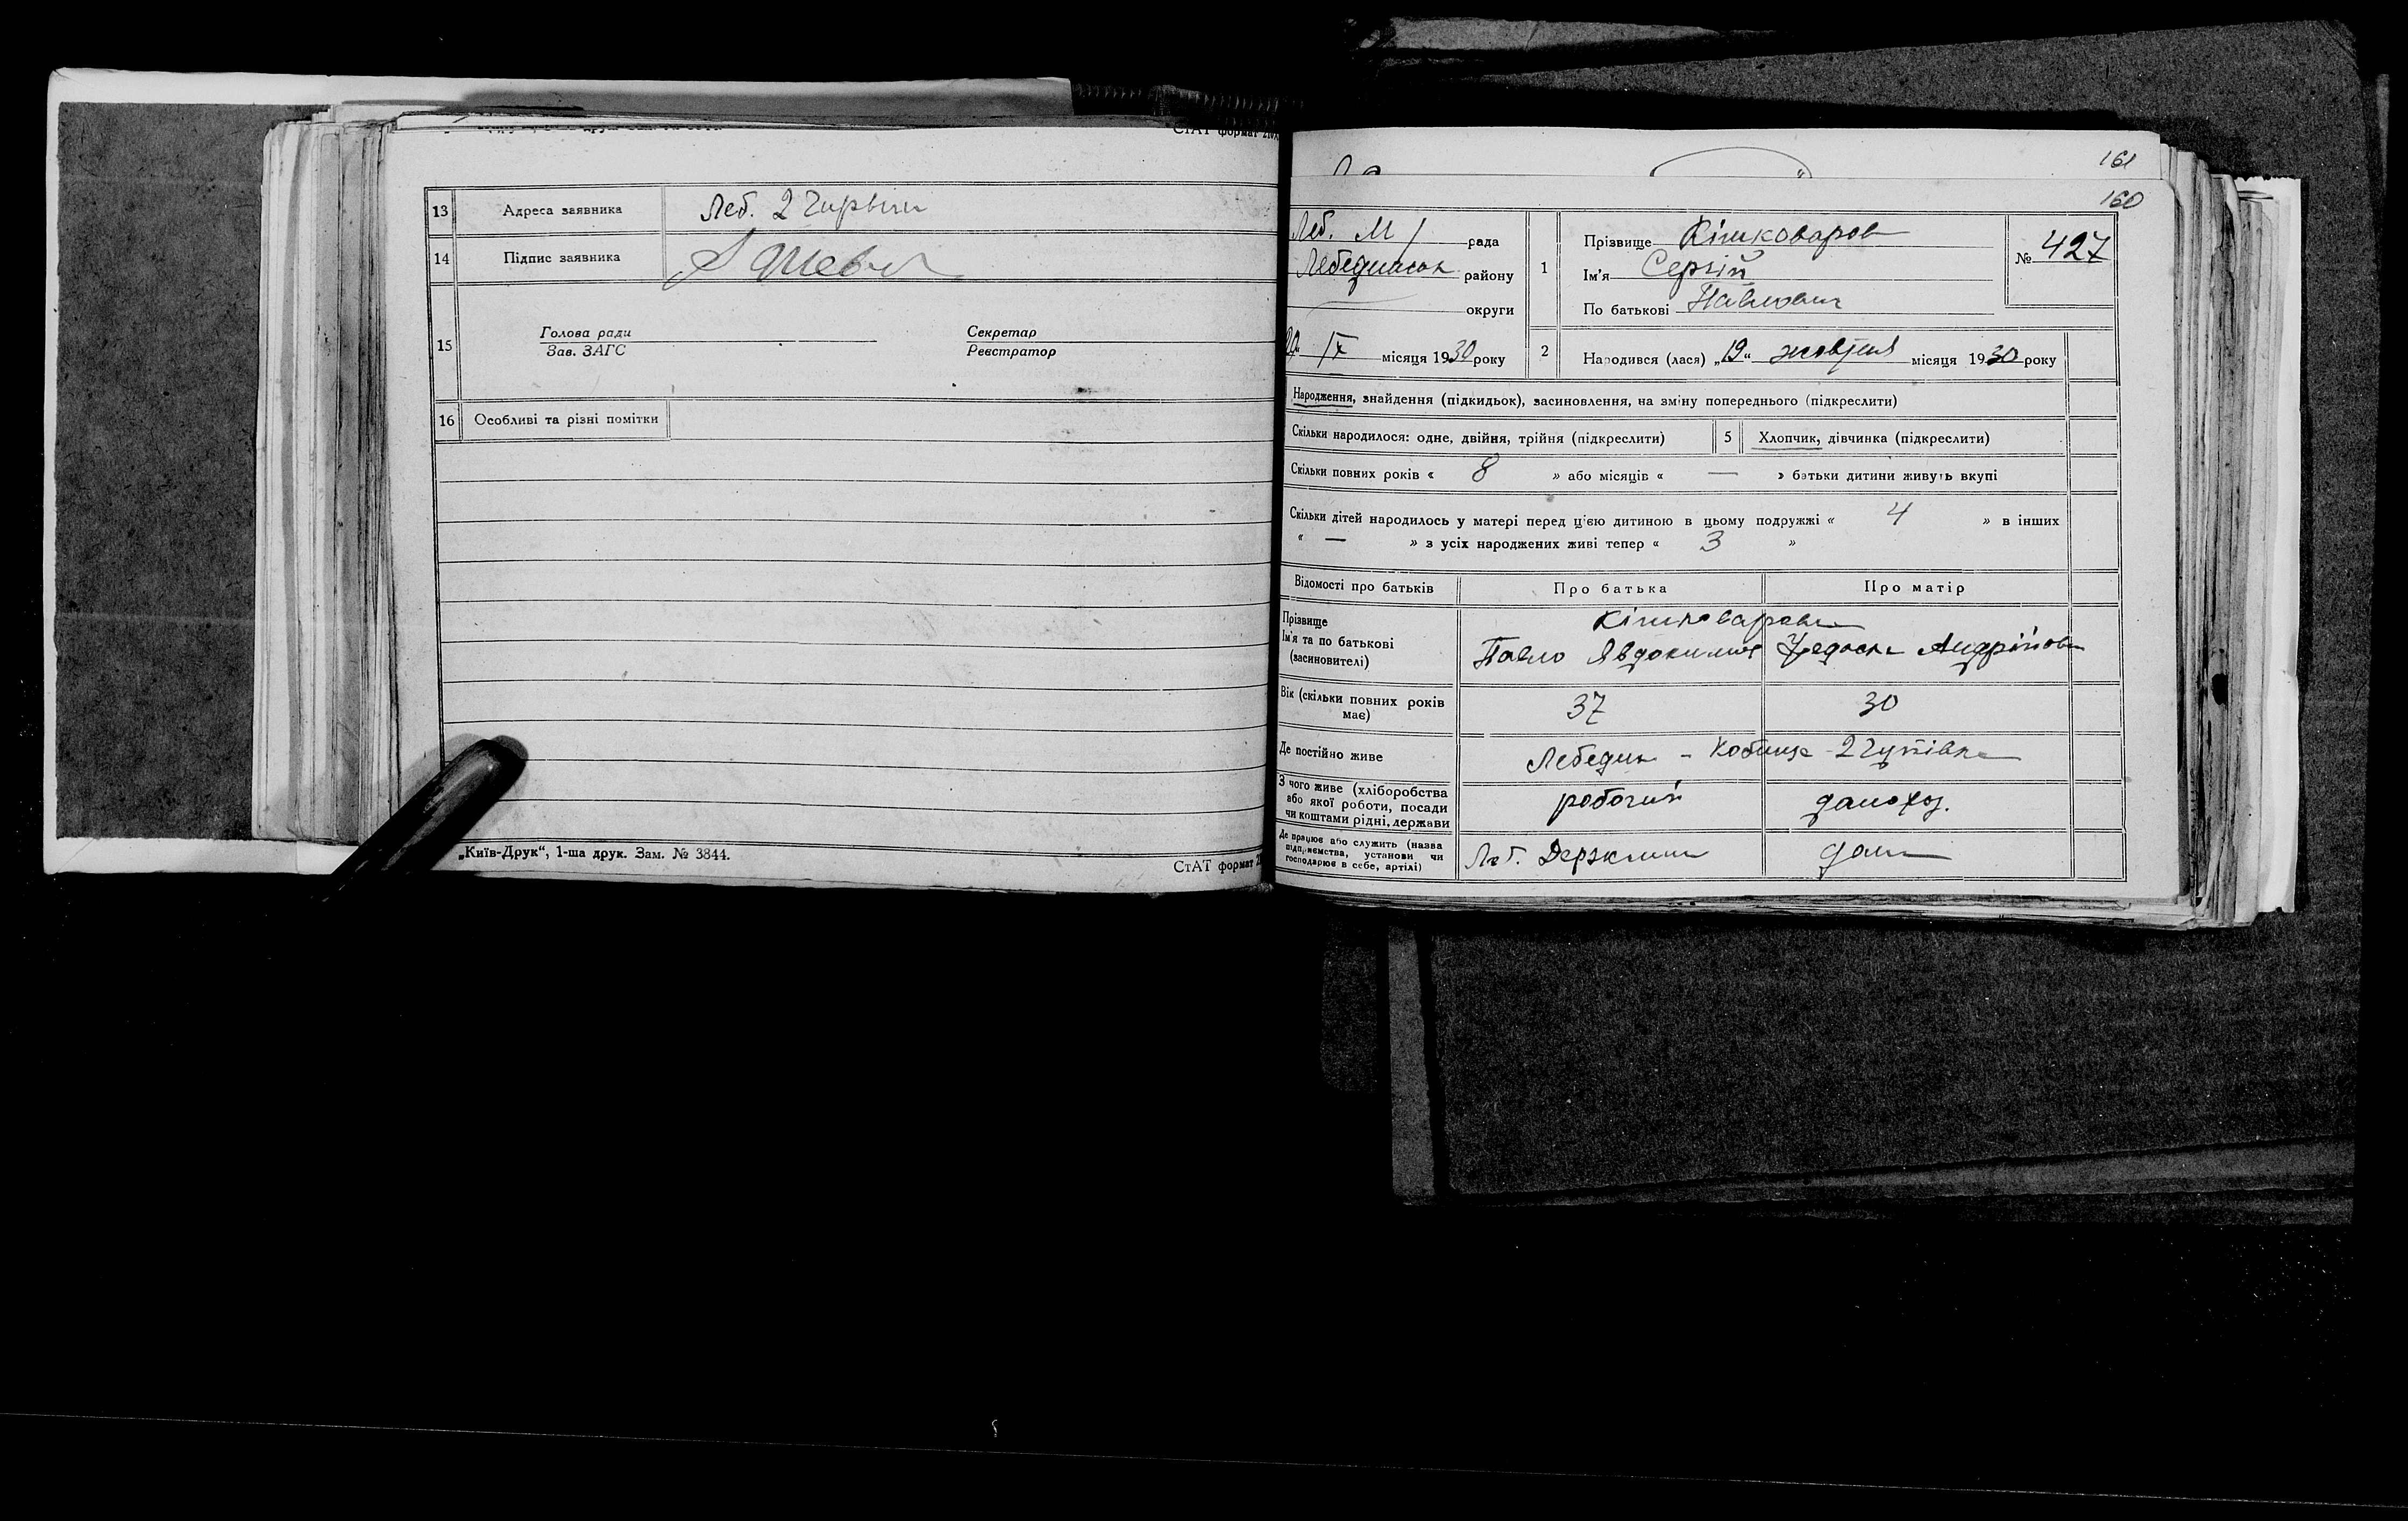 СтАТ формат
13 Адреса заявника Леб. 2
14 Підпис заявника
15 Голова ради Секретар
Зав. ЗАГС Реєстратор
16 Особливі та різні помітки
„Київ-Друк“, 1-ша друк. Зам. № 3844. СтАТ формат
161
160
Леб. М рада
району
округи
IX місяця 1930 року
1 Прізвище Кішковаров
Ім'я Сергій
По батькові Павлович
№ 427
2 Народився (лася) „19“ жовтня місяця 1930 року
Народження, знайдення (підкидьок), засиновлення, на зміну попереднього (підкреслити)
Скільки народилося: одне, двійня, трійня (підкреслити) 5 Хлопчик, дівчинка (підкреслити)
Скільки повних років « 8 » або місяців « — » батьки дитини живуть вкупі
Скільки дітей народилось у матері перед цією дитиною в цьому подружжі « 4 » в інших
« — » з усіх народжених живі тепер « 3 »
Відомості про батьків Про батька Про матір
Прізвище
Ім'я та по батькові
(засиновителі)
Кішковарови
Павло Явдокимов Федоска Андрійовн
Вік (скільки повних років
має) 37 30
Де постійно живе Лебедин -
З чого живе (хліборобства
або якої роботи, посади
чи коштами рідні, держави
робочий домохоз.
Де працює або служить (назва
підприємства, установи чи
господарює в себе, артілі)
Леб. Держмлин дома